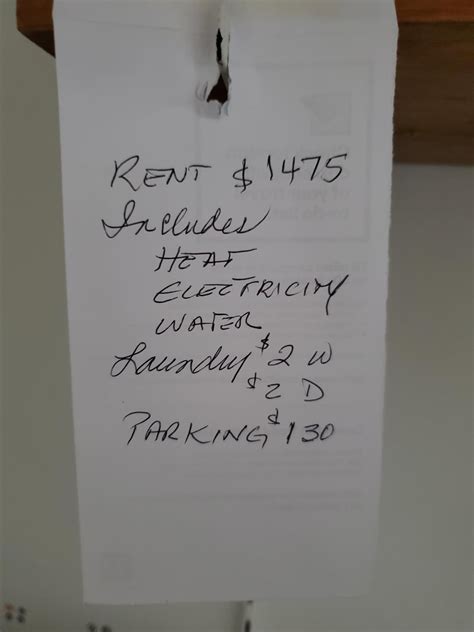 RENT $1475
Includes
HEAT
ELECTRICITY
WATER
Laundry $2 W
$2 D
PARKING $130